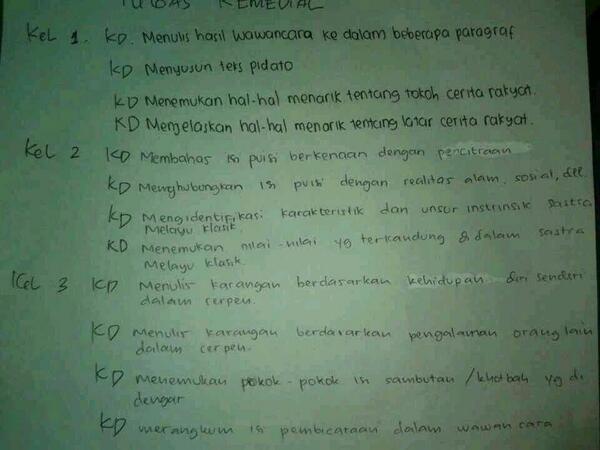 TUGAS REMEDIAL
KeL 1. KD. Menulis hasil wawancara ke dalam beberapa paragraf
KD Menyusun teks pidato
KD Menemukan hal-hal menarik tentang tokoh cerita rakyat.
KD Menjelaskan hal-hal menarik tentang latar cerita rakyat.
KeL 2 KD Membahas isi puisi berkenaan dengan pencitraan
KD Menghubungkan isi puisi dengan realitas alam, sosial, dll
KD Mengidentifikasi karakteristik dan unsur instrinsik sastra
Melayu klasik.
KD Menemukan nilai-nilai yg terkandung di dalam sastra
Melayu klasik.
KeL 3 KD Menulis karangan berdasarkan kehidupan diri sendiri
dalam cerpen.
KD Menulis karangan berdasarkan pengalaman orang lain
dalam cerpen.
KD Menemukan pokok-pokok isi sambutan / khotbah yg di
dengar
KD merangkum isi pembicaraan dalam wawancara